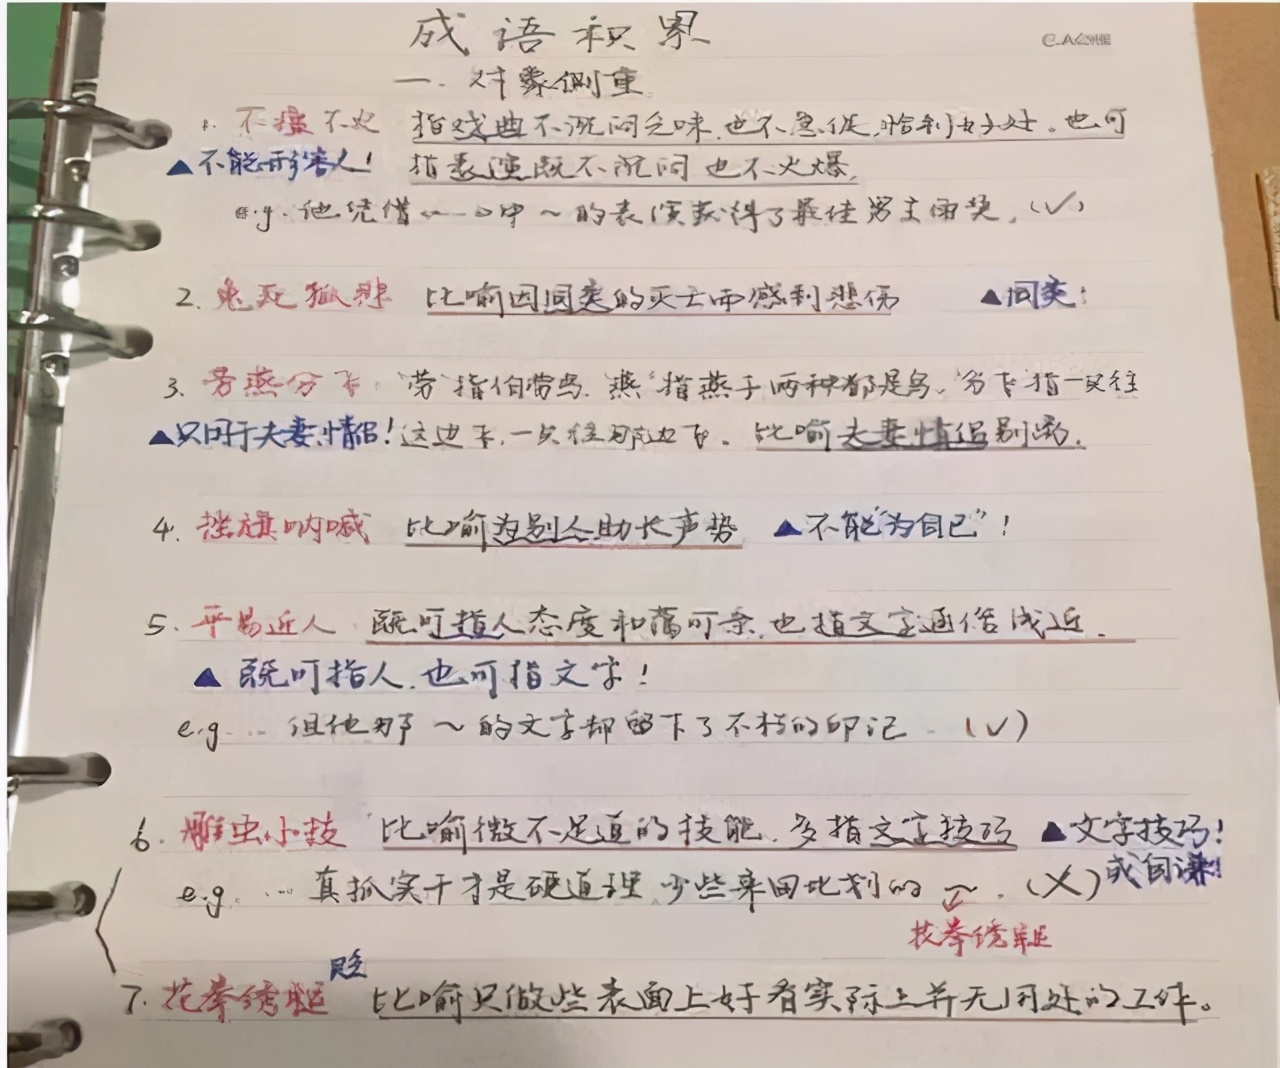 成语积累
一. 对象侧重
1. 不瘟不火 指戏曲不沉闷乏味,也不急促,恰到好处。也可
▲不能形容人! 指表演既不沉闷也不火爆.
e.g. 他凭借《……》中~的表演获得了最佳男主角奖.(√)
2. 兔死狐悲 比喻因同类的灭亡而感到悲伤 ▲同类!
3. 劳燕分飞:"劳"指伯劳鸟."燕"指燕子两种都是鸟."分飞"指一只往
▲只用于夫妻,情侣!这边飞,一只往那边飞。比喻夫妻情侣别离.
4. 摇旗呐喊 比喻为别人助长声势 ▲不能"为自己"!
5. 平易近人 既可指人态度和蔼可亲,也指文字通俗浅近.
▲ 既可指人,也可指文字!
e.g. … 但他那~的文字却留下了不朽的印记.(√)
6. 雕虫小技 比喻微不足道的技能,多指文字技巧 ▲文字技巧!
或自谦!
e.g. … 真抓实干才是硬道理,少些来回比划的~.(×)
花拳绣腿
贬
7. 花拳绣腿 比喻只做些表面上好看实际上并无用处的工作。